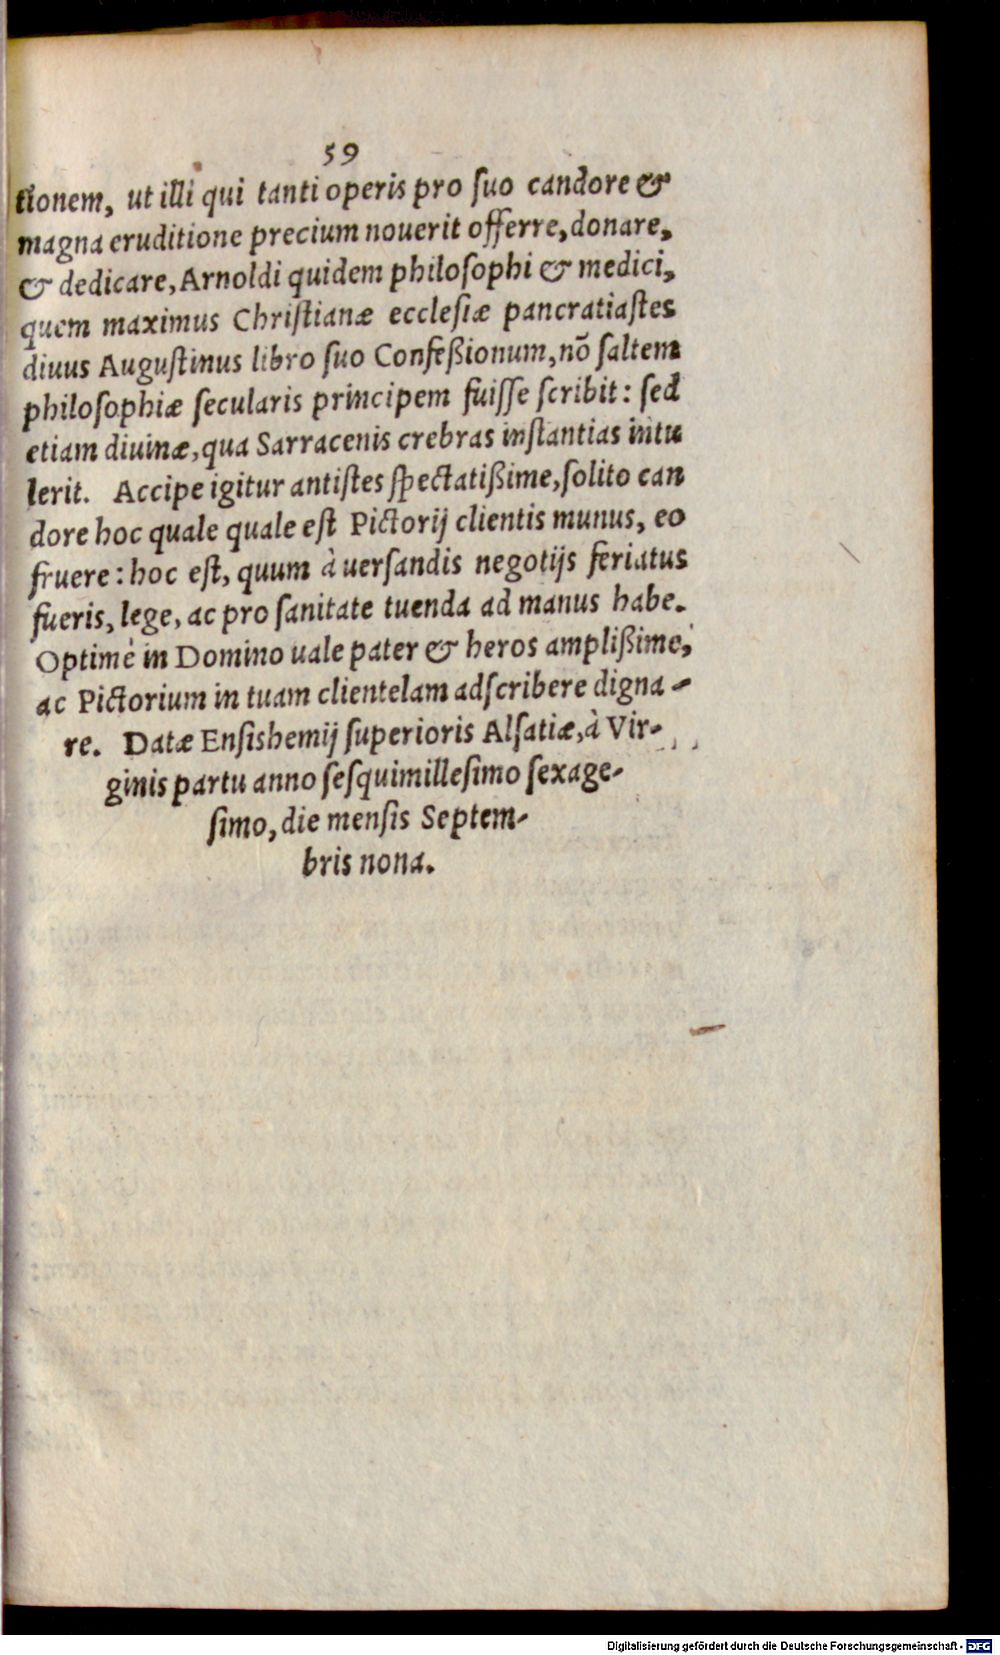 59
tionem, ut illi qui tanti operis pro ſuo candore &
magna eruditione precium nouerit offerre, donare,
& dedicare, Arnoldi quidem philoſophi & medici,
quem maximus Chriſtianæ eccleſiæ pancratiaſtes
diuus Auguſtinus libro ſuo Confeßionum, nõ ſaltem
philoſophiæ ſecularis principem fuiſſe ſcribit: ſed
etiam diuinæ, qua Sarracenis crebras inſtantias intu
lerit. Accipe igitur antiſtes ſpectatißime, ſolito can
dore hoc quale quale eſt Pictorij clientis munus, eo
fruere: hoc eſt, quum à uerſandis negotijs feriatus
fueris, lege, ac pro ſanitate tuenda ad manus habe.
Optimè in Domino uale pater & heros amplißime,
ac Pictorium in tuam clientelam adſcribere digna-
re. Datæ Enſishemij ſuperioris Alſatiæ, à Vir-
ginis partu anno ſeſquimilleſimo ſexage-
ſimo, die menſis Septem-
bris nona.
Digitalisierung gefördert durch die Deutsche Forschungsgemeinschaft - DFG